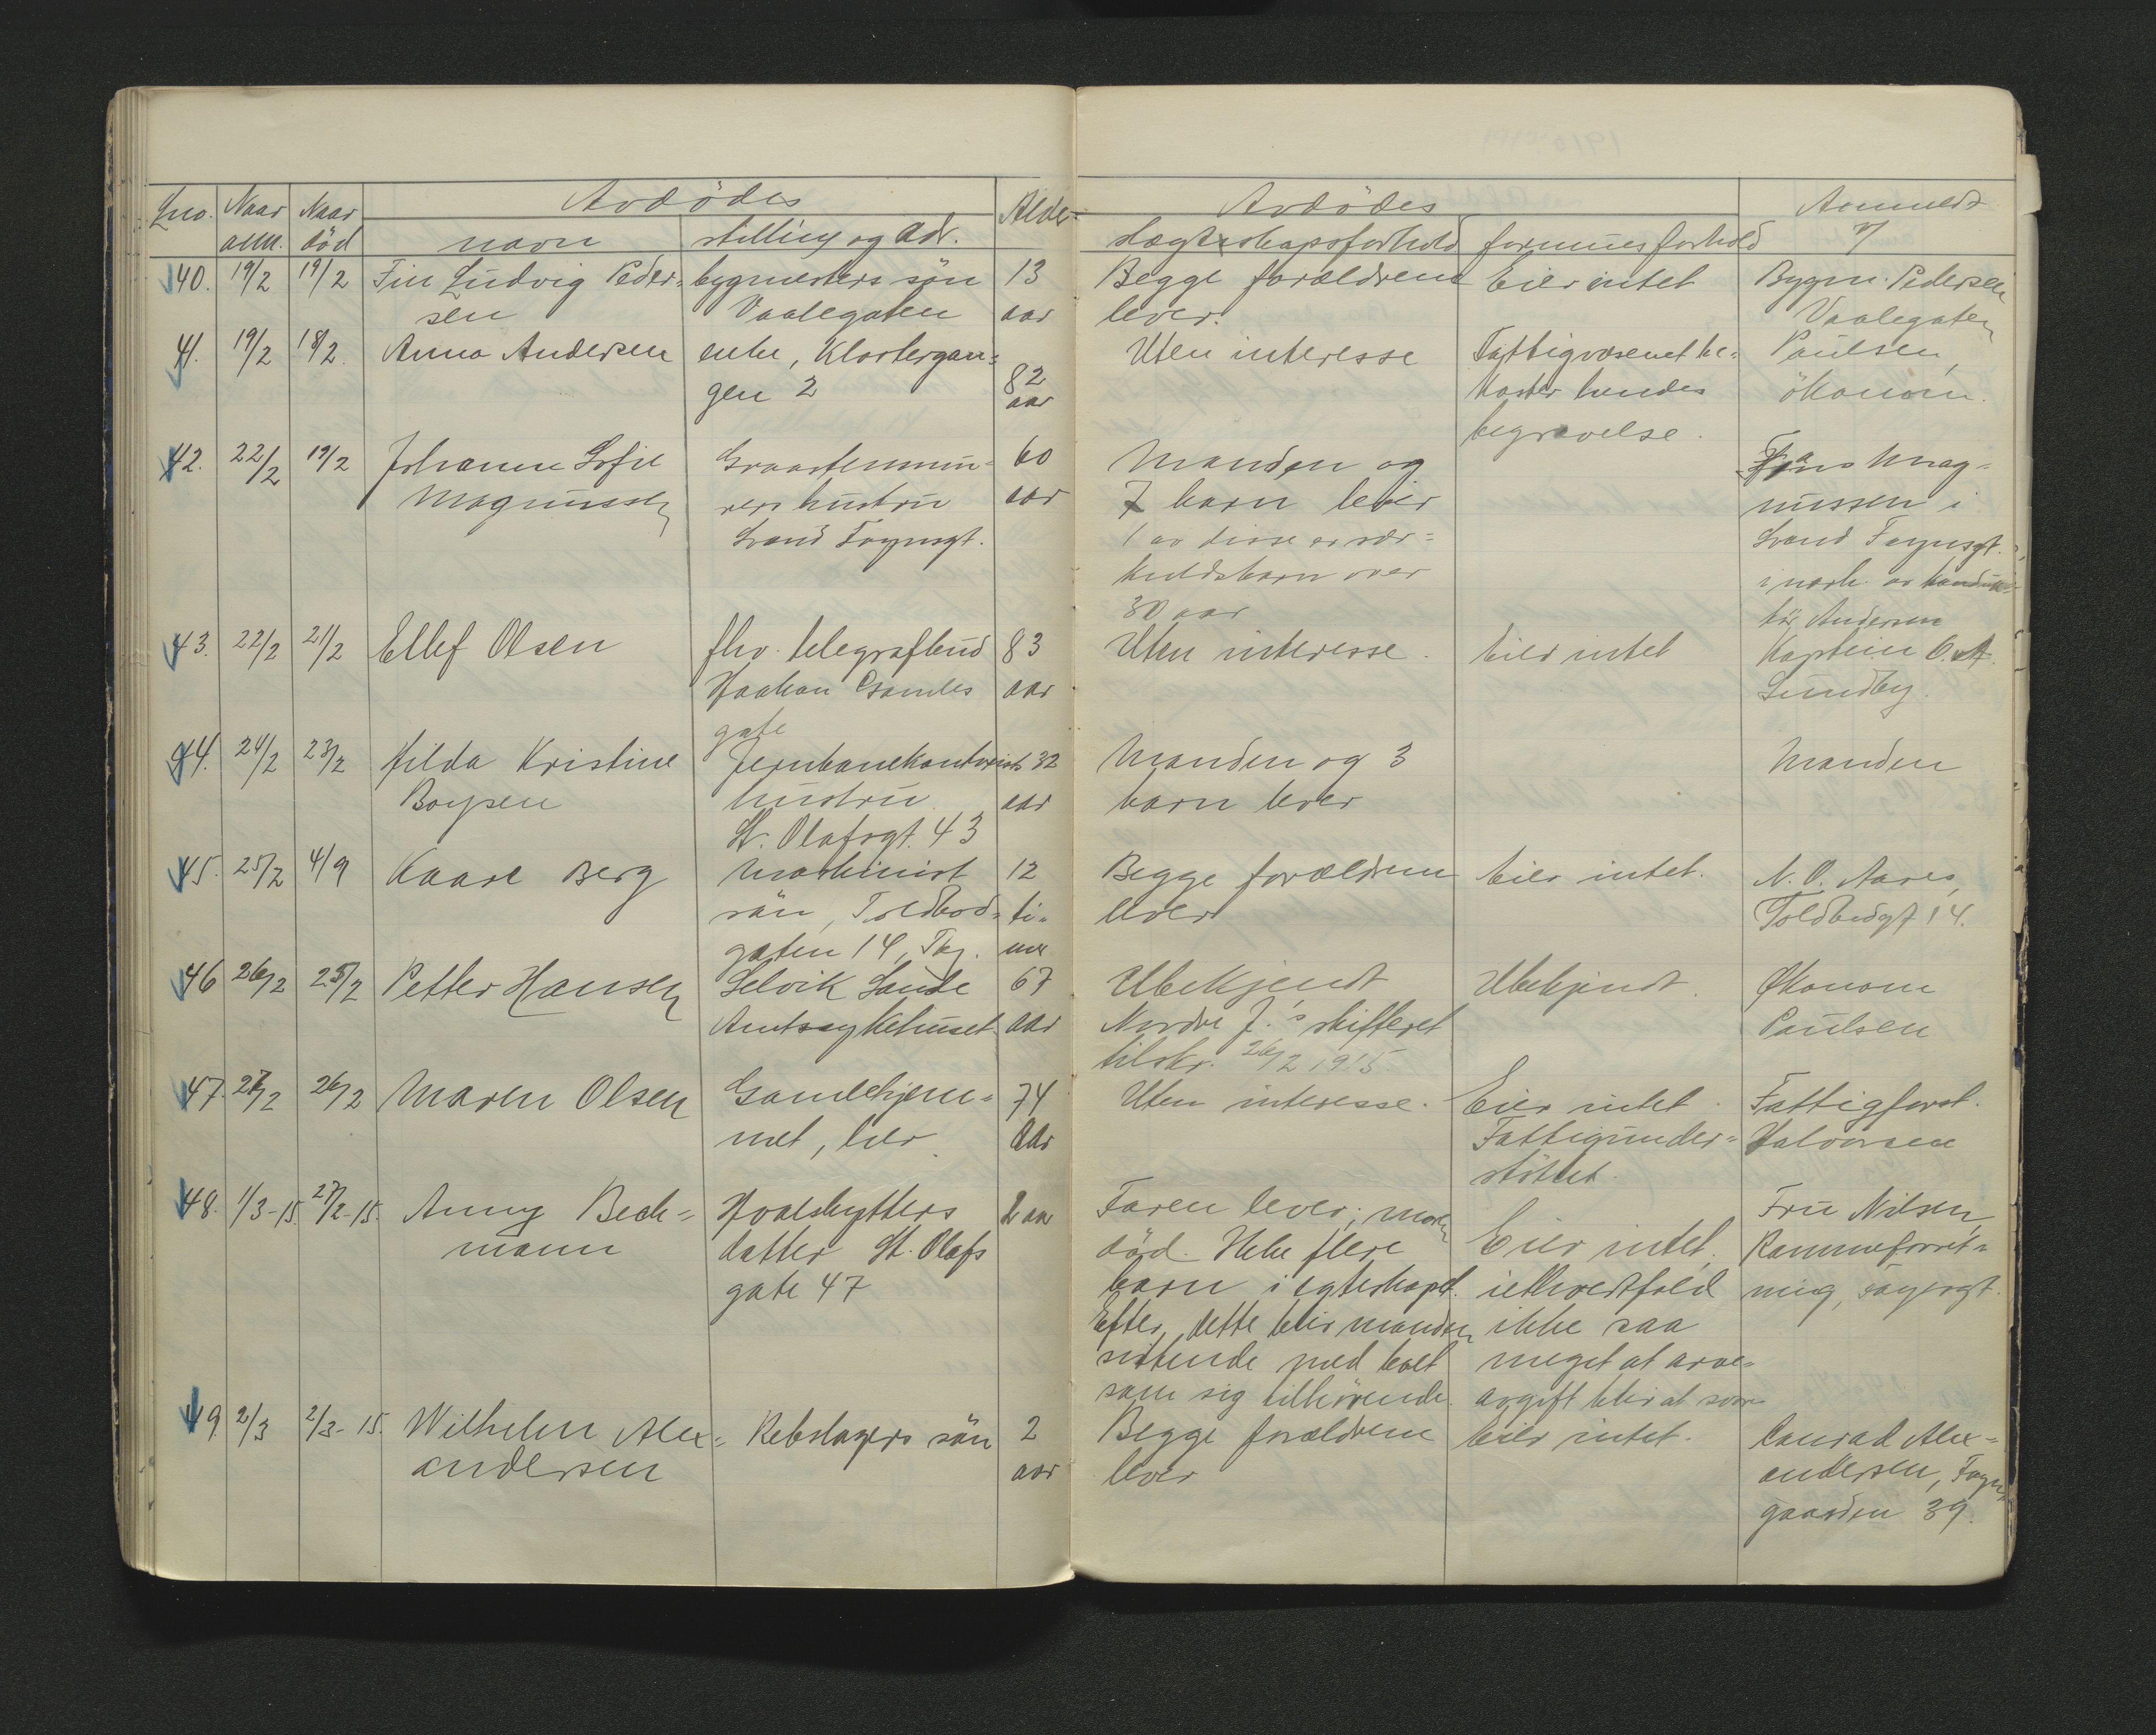 Lno. Naar anm. Naar död Avdödes navn stilling og adr. Alder
Avdödes slægtskapsforhold formuesforhold Anmeldt v/
40. 19/2 19/2 Fin Ludvig Peder=
sen
bygmesters sön
Vaalegaten
13
aar
Begge forældrene
lever.
Eier intet
Bygm. Pedersen
Vaalegaten
41. 19/2 18/2 Anna Andersen
enke, Klostergan=
gen 2
82
aar
Uten interesse
Fattigvæsenet be=
koster hendes
begravelse.
Paulsen,
ökonom.
42. 22/2 19/2 Johanne Sofie
Magnussen
Graastensmu=
rers hustru
Svend Foynsgt.
60
aar
Manden og
7 barn lever
1 av disse er sær=
kuldsbarn over
30 aar
Magnussen i
Svend Foynsgt.
43. 22/2 21/2 Ellef Olsen
fhv. telegrafbud
Haakon Gamles
gate
83
aar
Uten interesse.
Eier intet
Kaptein O. A.
Lundby.
44. 24/2 23/2 Hilda Kristine
Boysen
Jernbanekontorists
hustru
St. Olafsgt. 43
32
aar
Manden og 3
barn lever
Manden
45. 25/2 4/9 Kaare Berg
Maskinist
sön, Toldbod=
gaten 14, Tbg.
12
ti=
mer
Begge forældrene
lever
Eier intet.
N. O. Aares,
Toldbodgt 14.
46 26/2 25/2 Petter Hansen
Selvik Sande
Amtssykehuset
67
aar
Ubekjendt
Nordre J.'s skifteret
tilskr. 26/2 1915.
Ubekjendt.
Økonom
Paulsen
47. 27/2 26/2 Maren Olsen
Gamlehjem=
met, her.
74
aar
Uten interesse.
Eier intet.
Fattigunder=
støttet.
Fattigforst.
Halvorsen
48. 1/3-15. 27/2-15. Anny Beck=
mann
Hvalskytters
datter St. Olafs
gate 47
2 aar
Faren lever; moren
död. Ikke flere
barn i egteskapet.
Efter dette blir manden
sittende med boet
som sig tilhörende.
Eier intet,
ialhvertfald
ikke saa
meget at arve=
avgift blir at svare
Fru Nilsen,
Rammeforret=
ning, Föynsgt.
49. 2/3 2/3-15. Wilhelm Alex=
andersen
Rebslagers sön
2
aar
Begge forældrene
lever
Eier intet.
Conrad Alex=
andersen, Foyn
gaarden 39.